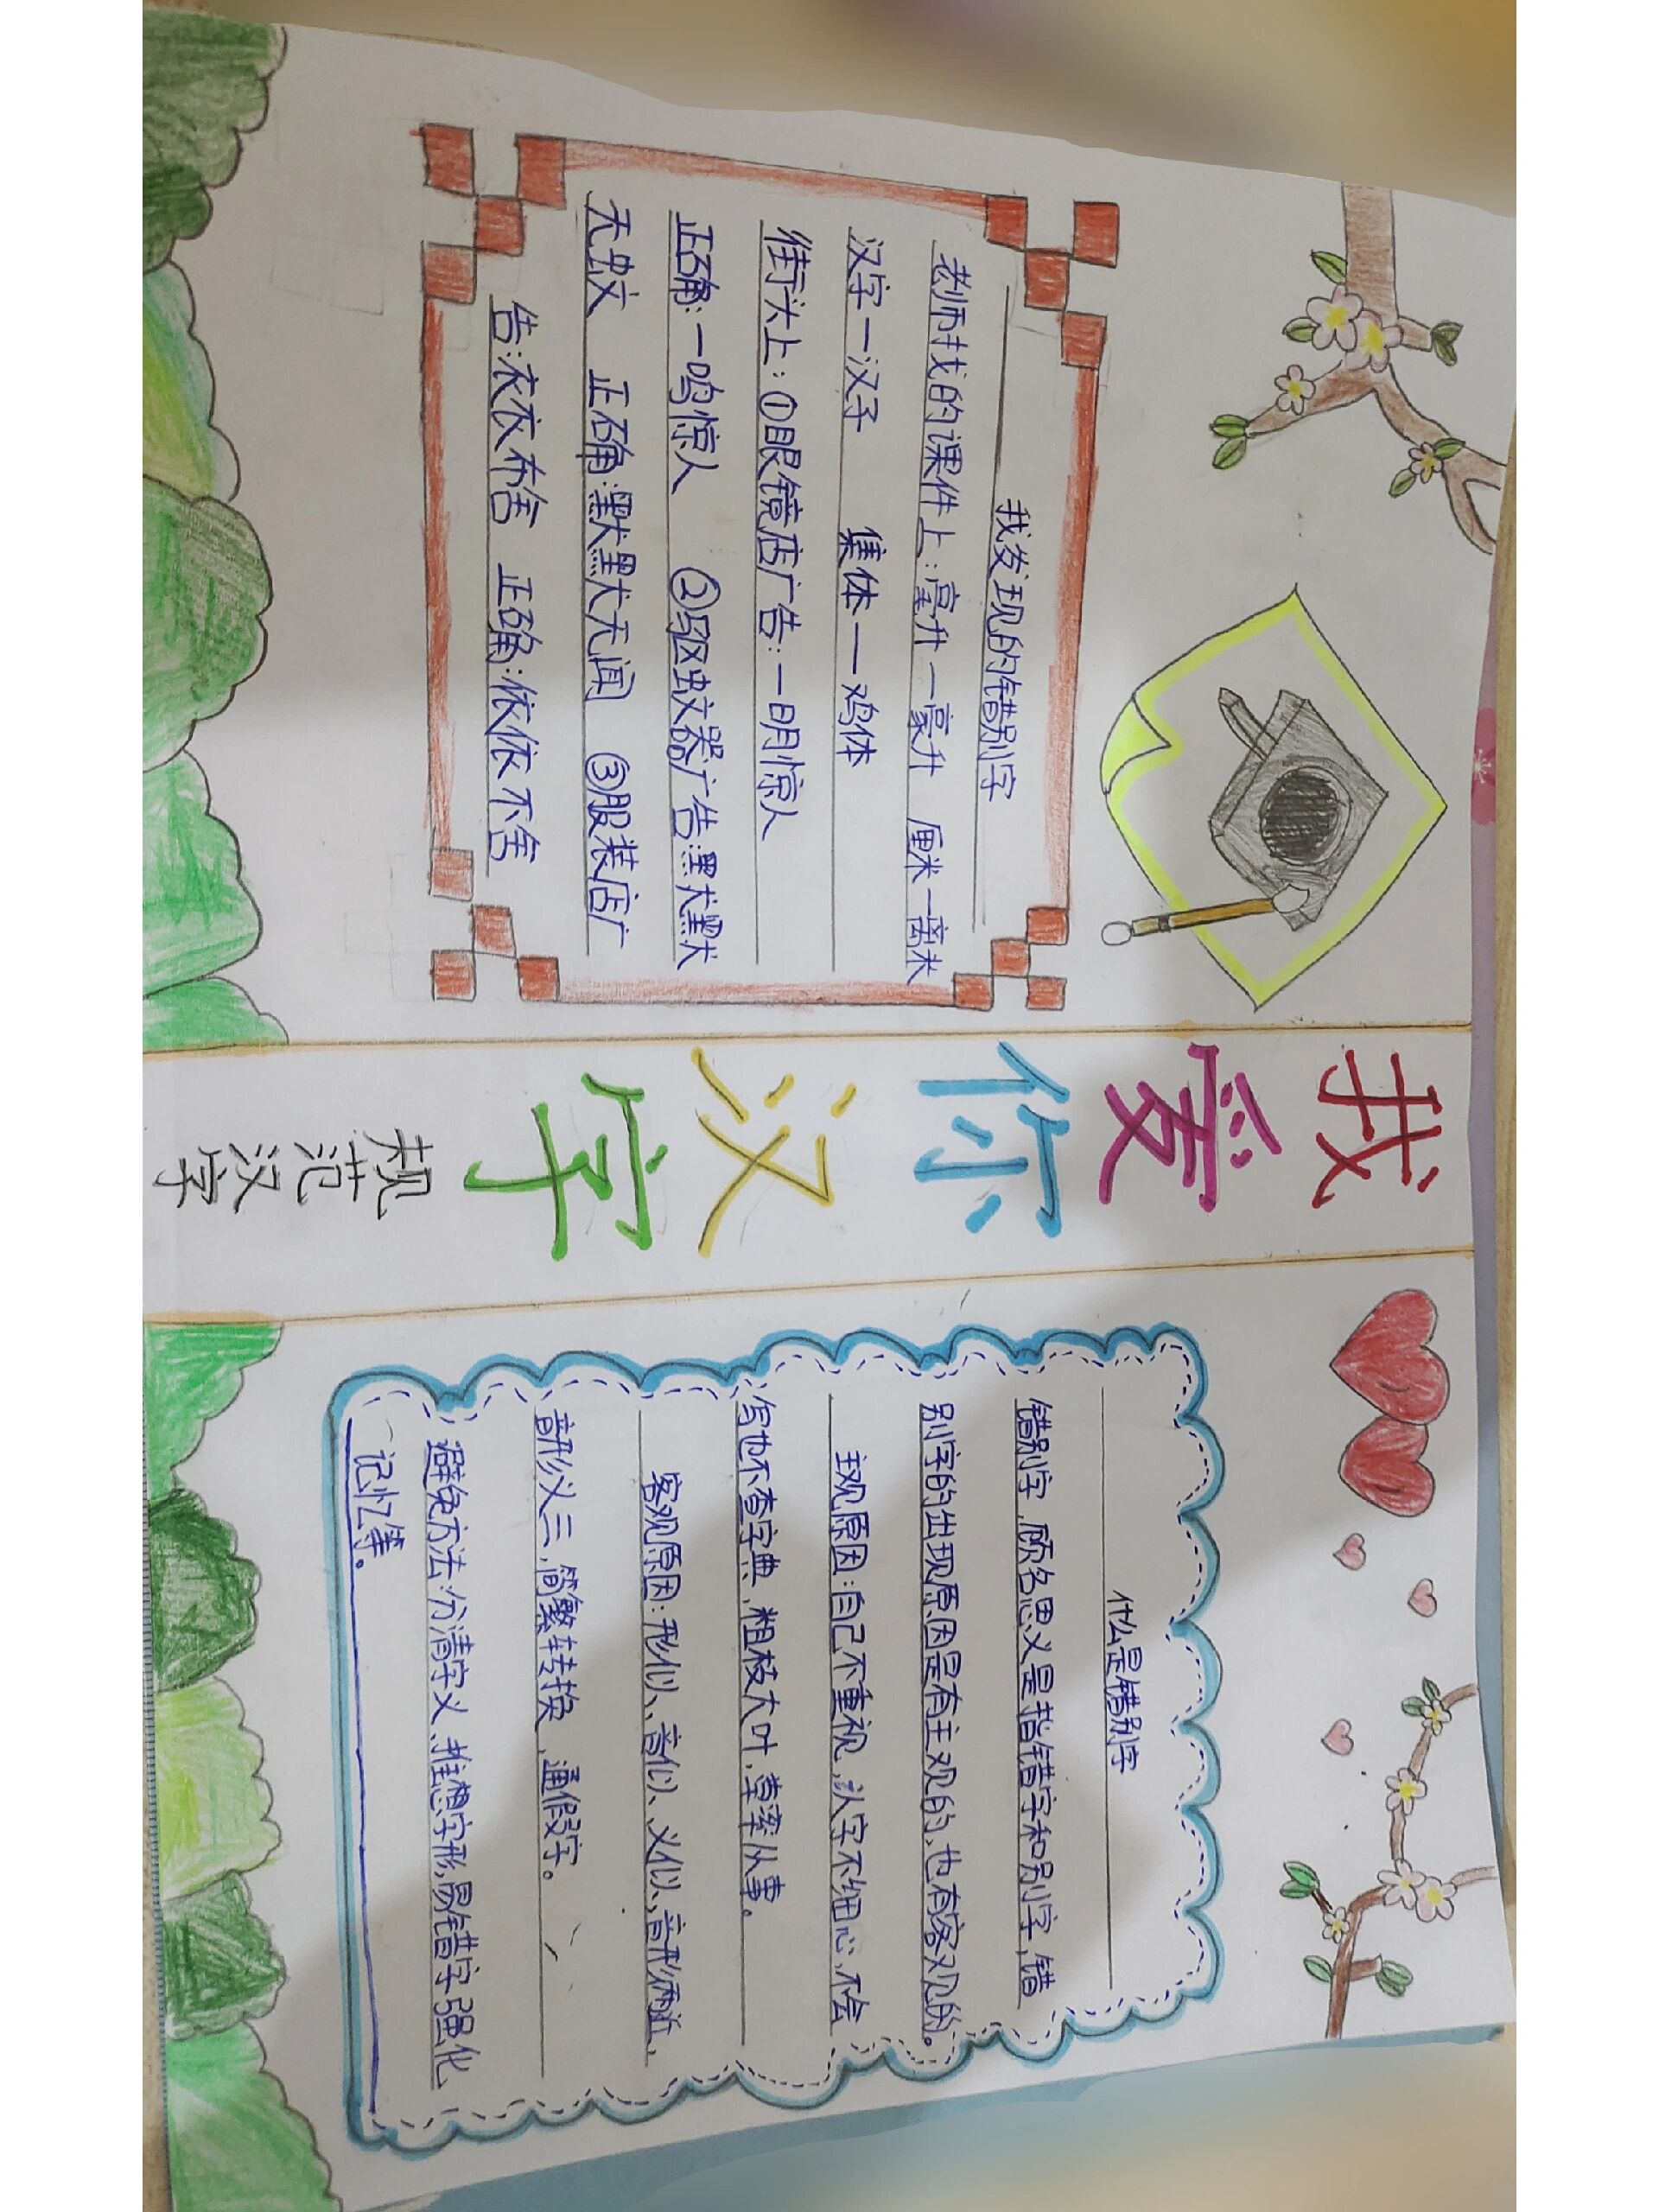 我发现的错别字
老师找的课件上：毫升一豪升 厘米一离米
汉字一汉子 集体一鸡体
街头上：①眼镜店广告：一明惊人
正确：一鸣惊人 ②驱蚊器广告：默默
无蚊 正确：默默无闻 ③服装店广
告：衣衣布舍 正确：依依不舍
我爱你汉字
规范汉字
什么是错别字
错别字，顾名思义是指错字和别字，错
别字的出现原因是有主观的，也有客观的。
主观原因：自己不重视，认字不细心，不会
写也不查字典，粗枝大叶，草率从事。
客观原因：形似、音似、义似、音形两近，
音形义三，简繁转换，通假字。
避免方法：分清字义、推想字形，易错字强化
记忆等。